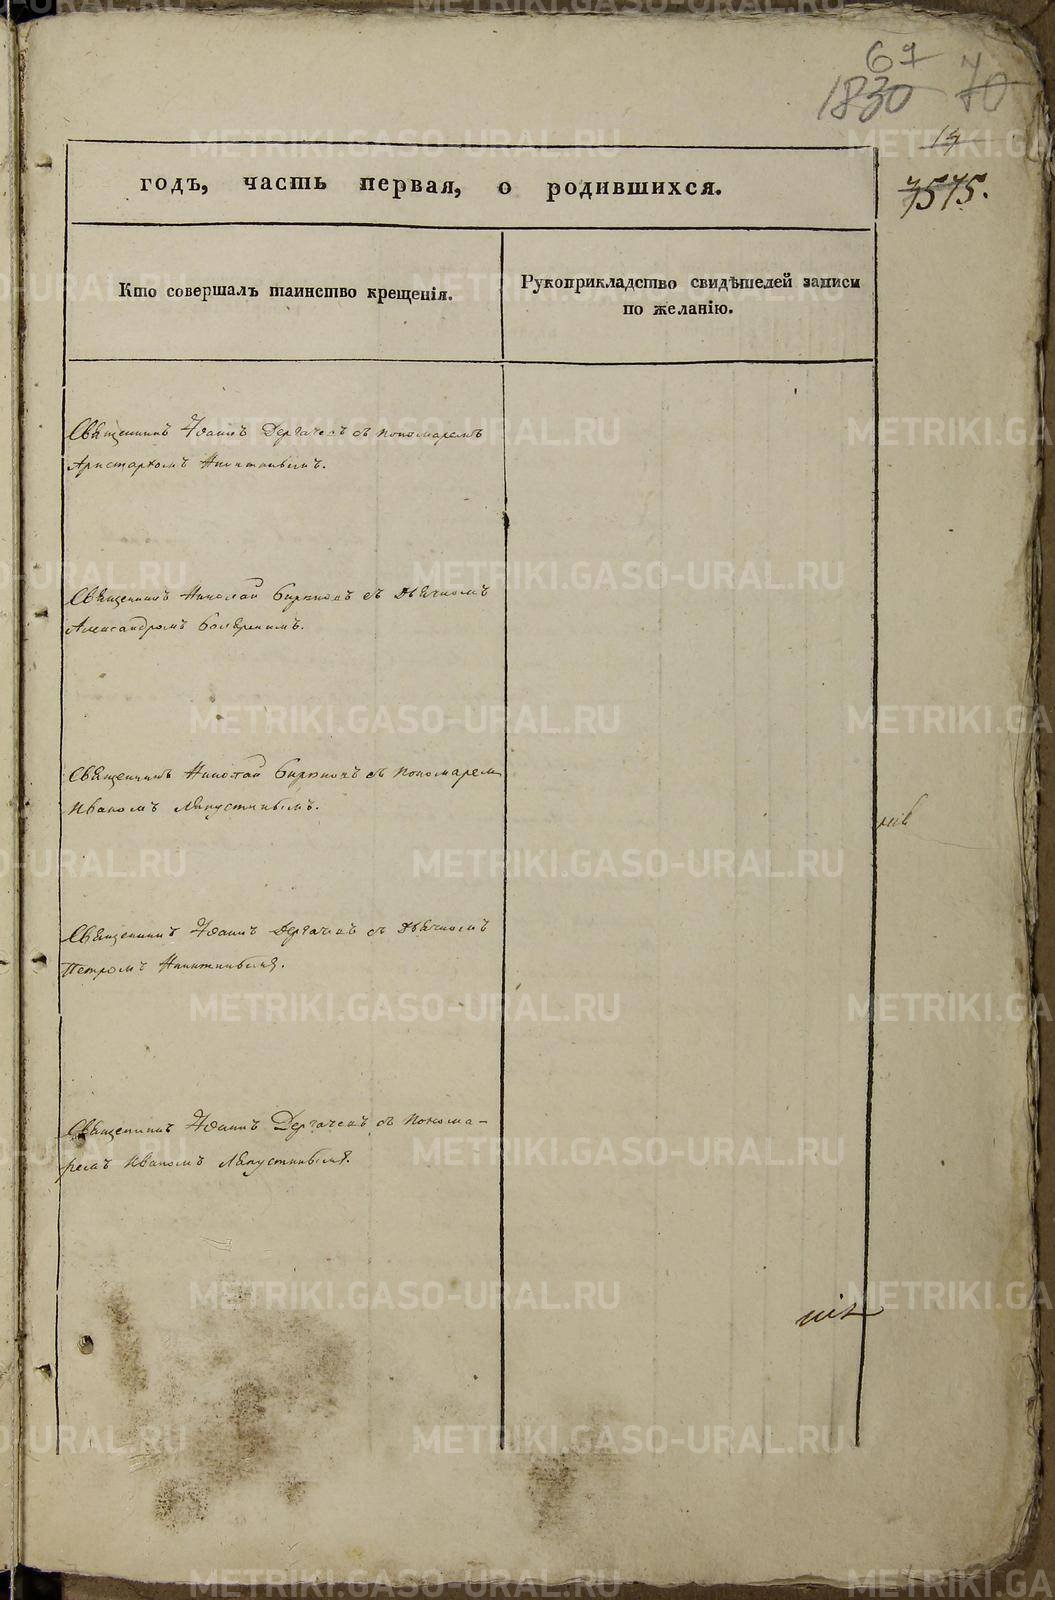 69
1830 70
19
7575.
годъ, часть первая, о родившихся.
Кто совершалъ таинство крещенія.
Рукоприкладство свидѣтелей записи
по желанію.
Священникъ Іоаннъ Дергачевъ съ пономаремъ
Аристархомъ Никитинымъ.
Священникъ Николай Бирюковъ съ Дьячкомъ
Александромъ
Священникъ Николай Бирюковъ съ пономарем
Иваномъ Ляпустинымъ.
Священникъ Іоаннъ Дергачевъ съ Дьячкомъ
Петромъ Никитинымъ.
Священникъ Іоаннъ Дергачевъ съ понома-
ремъ Иваномъ Ляпустинымъ.
METRIKI.GASO-URAL.RU